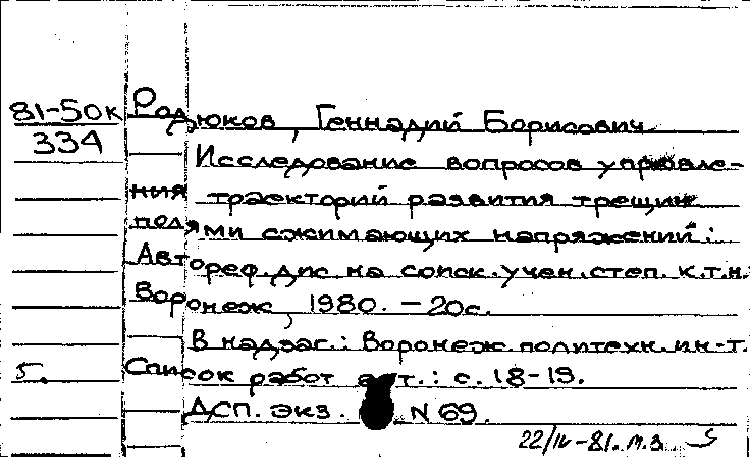 81-50к
334
Родюков, Геннадий Борисович
Исследование вопросов управле-
ния траекторий развития трещин
полями сжимающих напряжений:
Автореф. дис на соиск. учен. степ. к.т.н.
Воронеж, 1980. – 20с.
В надзаг.: Воронеж. политехн. ин-т.
5. Список работ авт.: с. 18-19.
ДСП. экз. N 69.
22/IV-81. м.з. 5